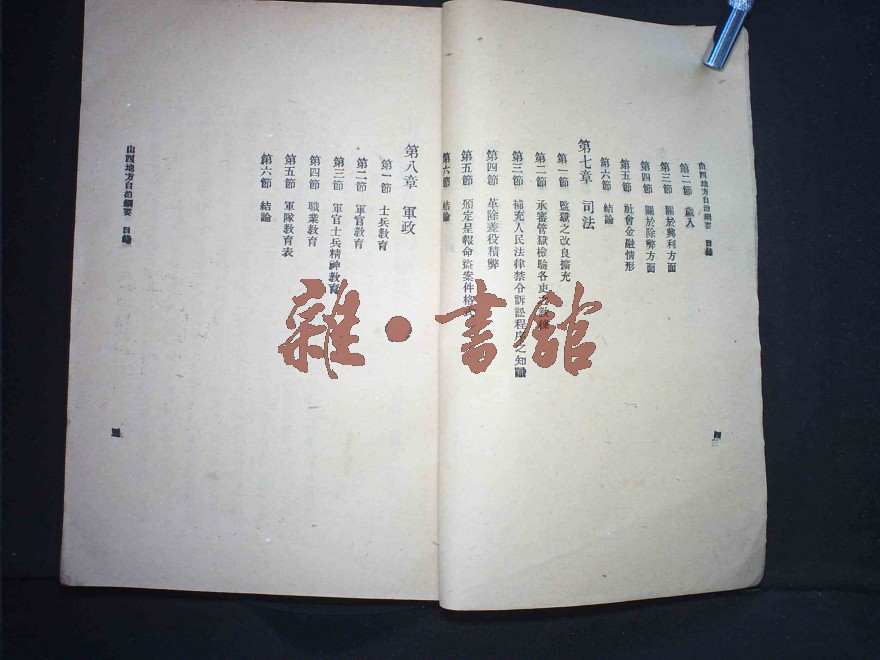 山西地方自治綱要 目錄
第二節 歲入
第三節 關於興利方面
第四節 關於除弊方面
第五節 社會金融情形
第六節 結論
第七章 司法
第一節 監獄之改良擴充
第二節 承審管獄檢驗各吏之訓練
第三節 補充人民法律禁令訴訟程序之知識
第四節 革除差役積弊
第五節 頒定呈報命盜案件格式
第六節 結論
第八章 軍政
第一節 士兵教育
第二節 軍官教育
第三節 軍官士兵精神教育
第四節 職業教育
第五節 軍隊教育表
第六節 結論
山西地方自治綱要 目錄
雜·書館